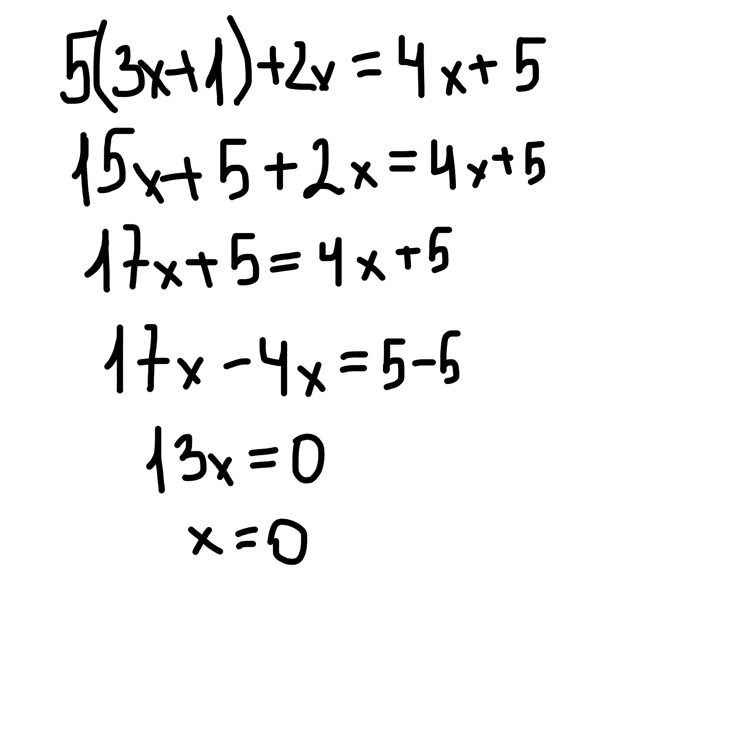 5(3x+1)+2x=4x+5
15x+5+2x=4x+5
17x+5=4x+5
17x-4x=5-5
13x=0
x=0